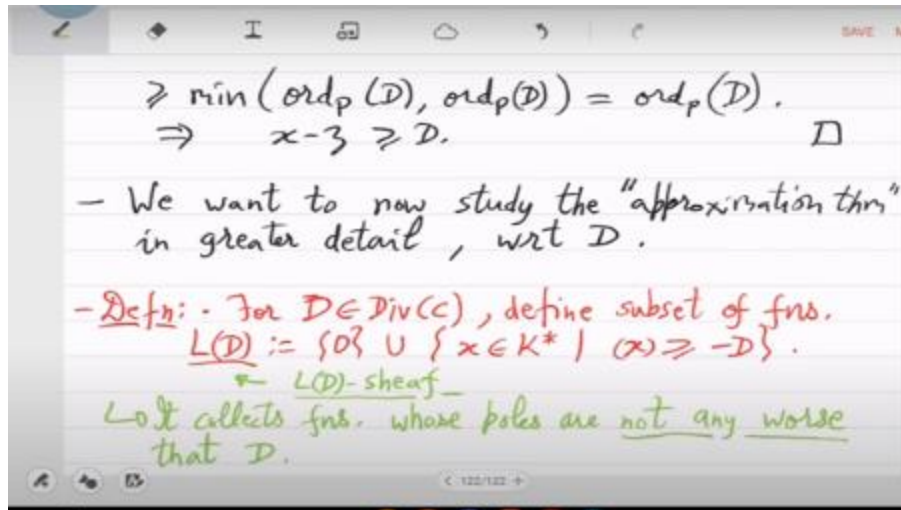 SAVE
⩾ min(ord_p(D), ord_p(D)) = ord_p(D).
⇒ x-z ⩾ D. □
- We want to now study the "approximation thm"
in greater detail, wrt D.
- Defn: · For D ∈ Div(C), define subset of fns.
L(D) := {0} ∪ { x ∈ K* | (x) ⩾ -D}.
← L(D)-sheaf
↳ It collects fns. whose poles are not any worse
that D.
< 122/122 +